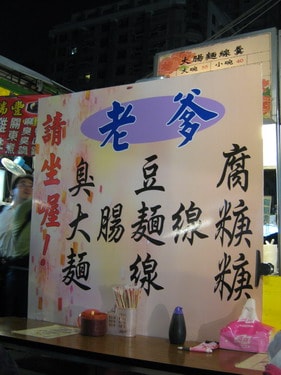 大腸麵線羹
大碗 小碗
老爹
請坐喔!
臭豆腐
大腸麵線焿
麵線焿